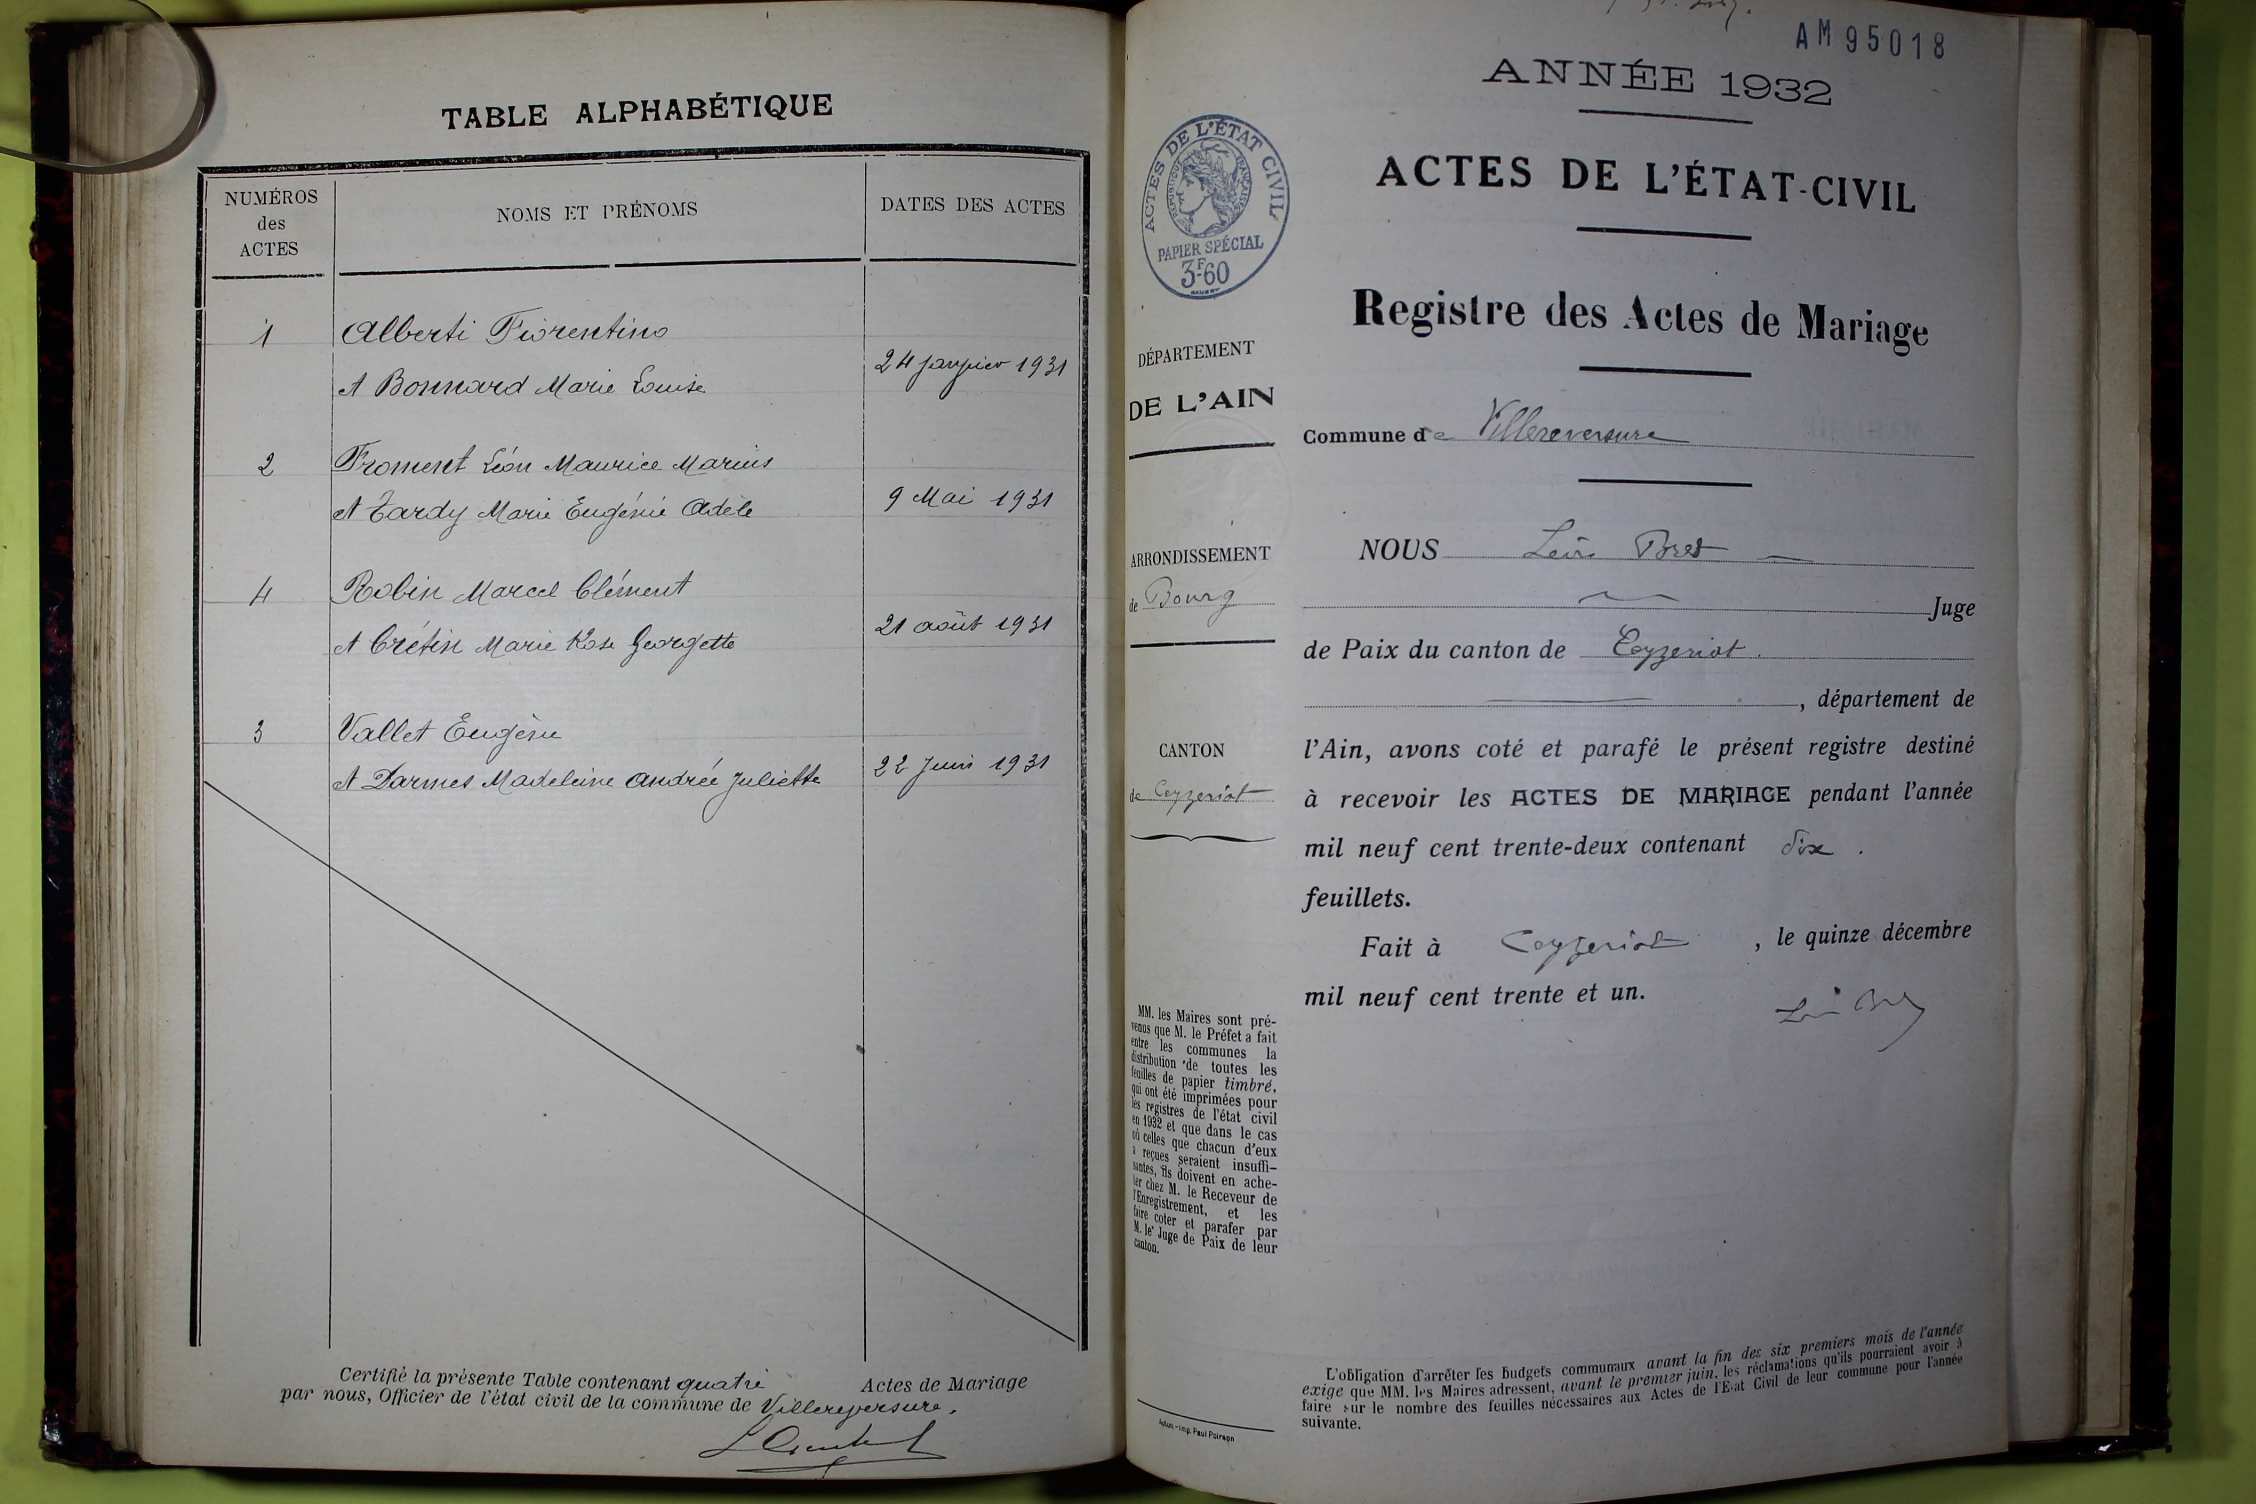 TABLE ALPHABÉTIQUE
NUMÉROS
des
ACTES
NOMS ET PRÉNOMS
DATES DES ACTES
1
Alberti Fiorentino
et Bonnard Marie Louise
24 janvier 1931
2
Froment Léon Maurice Marius
et Tardy Marie Eugénie Adèle
9 Mai 1931
4
Robin Marcel Clément
et Crétin Marie Rose Georgette
21 août 1931
3
Vallet Eugène
et Darmes Madeleine Andrée Juliette
22 Juin 1931
Certifié la présente Table contenant quatre Actes de Mariage
par nous, Officier de l'état civil de la commune de Villereversure.
AM95018
ANNÉE 1932
ACTES DE L'ÉTAT-CIVIL
Registre des Actes de Mariage
ACTES DE L'ÉTAT CIVIL
RÉPUBLIQUE FRANÇAISE
PAPIER SPÉCIAL
3F60
DÉPARTEMENT
DE L'AIN
ARRONDISSEMENT
de Bourg
CANTON
de Ceyzeriat
MM. les Maires sont pré-
venus que M. le Préfet a fait
entre les communes la
distribution de toutes les
feuilles de papier timbré,
qui ont été imprimées pour
les registres de l'état civil
en 1932 et que dans le cas
où celles que chacun d'eux
a reçues seraient insuffi-
santes, ils doivent en ache-
ter chez M. le Receveur de
l'Enregistrement, et les
faire coter et parafer par
M. le Juge de Paix de leur
canton.
Imp. Paul Poirson
Commune de Villereversure
NOUS Léon Bret
Juge
de Paix du canton de Ceyzeriat.
, département de
l'Ain, avons coté et parafé le présent registre destiné
à recevoir les ACTES DE MARIAGE pendant l'année
mil neuf cent trente-deux contenant dix.
feuillets.
Fait à Ceyzeriat, le quinze décembre
mil neuf cent trente et un.
L'obligation d'arrêter les budgets communaux avant la fin des six premiers mois de l'année
exige que MM. les Maires adressent, avant le premier juin, les réclamations qu'ils pourraient avoir à
faire sur le nombre des feuilles nécessaires aux Actes de l'Etat Civil de leur commune pour l'année
suivante.